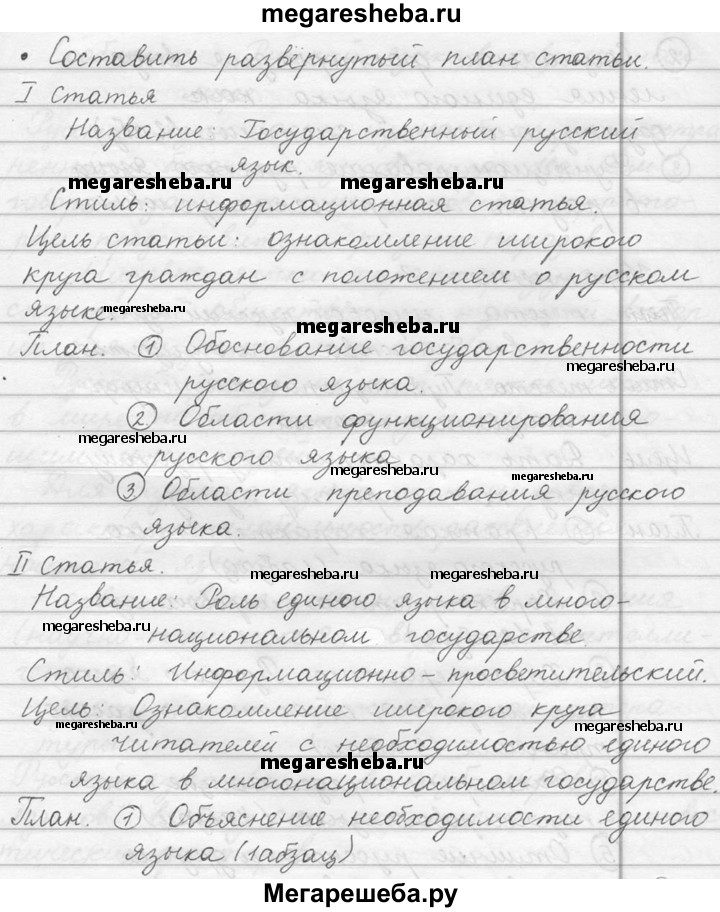 megaresheba.ru
• Составить развёрнутый план статьи.
I Статья
Название: Государственный русский
язык.
megaresheba.ru megaresheba.ru
Стиль: информационная статья.
Цель статьи: ознакомление широкого
круга граждан с положением о русском
языке. megaresheba.ru
megaresheba.ru
План. ① Обоснование государственности
megaresheba.ru
русского языка.
② Области функционирования
megaresheba.ru
русского языка
megaresheba.ru megaresheba.ru
③ Области преподавания русского
языка.
II Статья.
megaresheba.ru megaresheba.ru
Название: Роль единого языка в много-
megaresheba.ru
национальном государстве.
Стиль: Информационно-просветительский.
Цель: Ознакомление широкого круга
megaresheba.ru
читателей с необходимостью единого
megaresheba.ru
языка в многонациональном государстве.
План. ① Объяснение необходимости единого
языка (1абзац)
Мегарешеба.ру